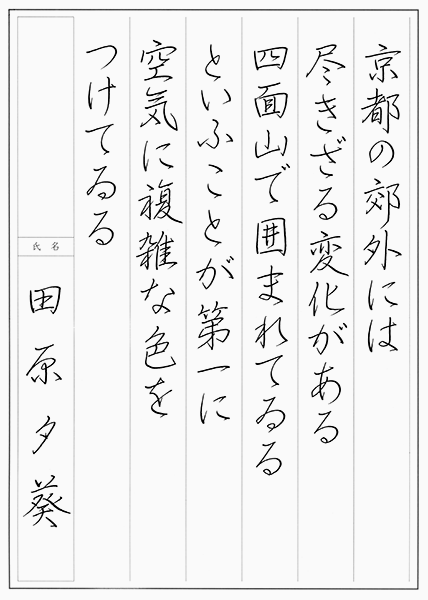 京都の郊外には
尽きざる変化がある
四面山で囲まれてゐる
といふことが第一に
空気に複雑な色を
つけてゐる
氏名
田原夕葵